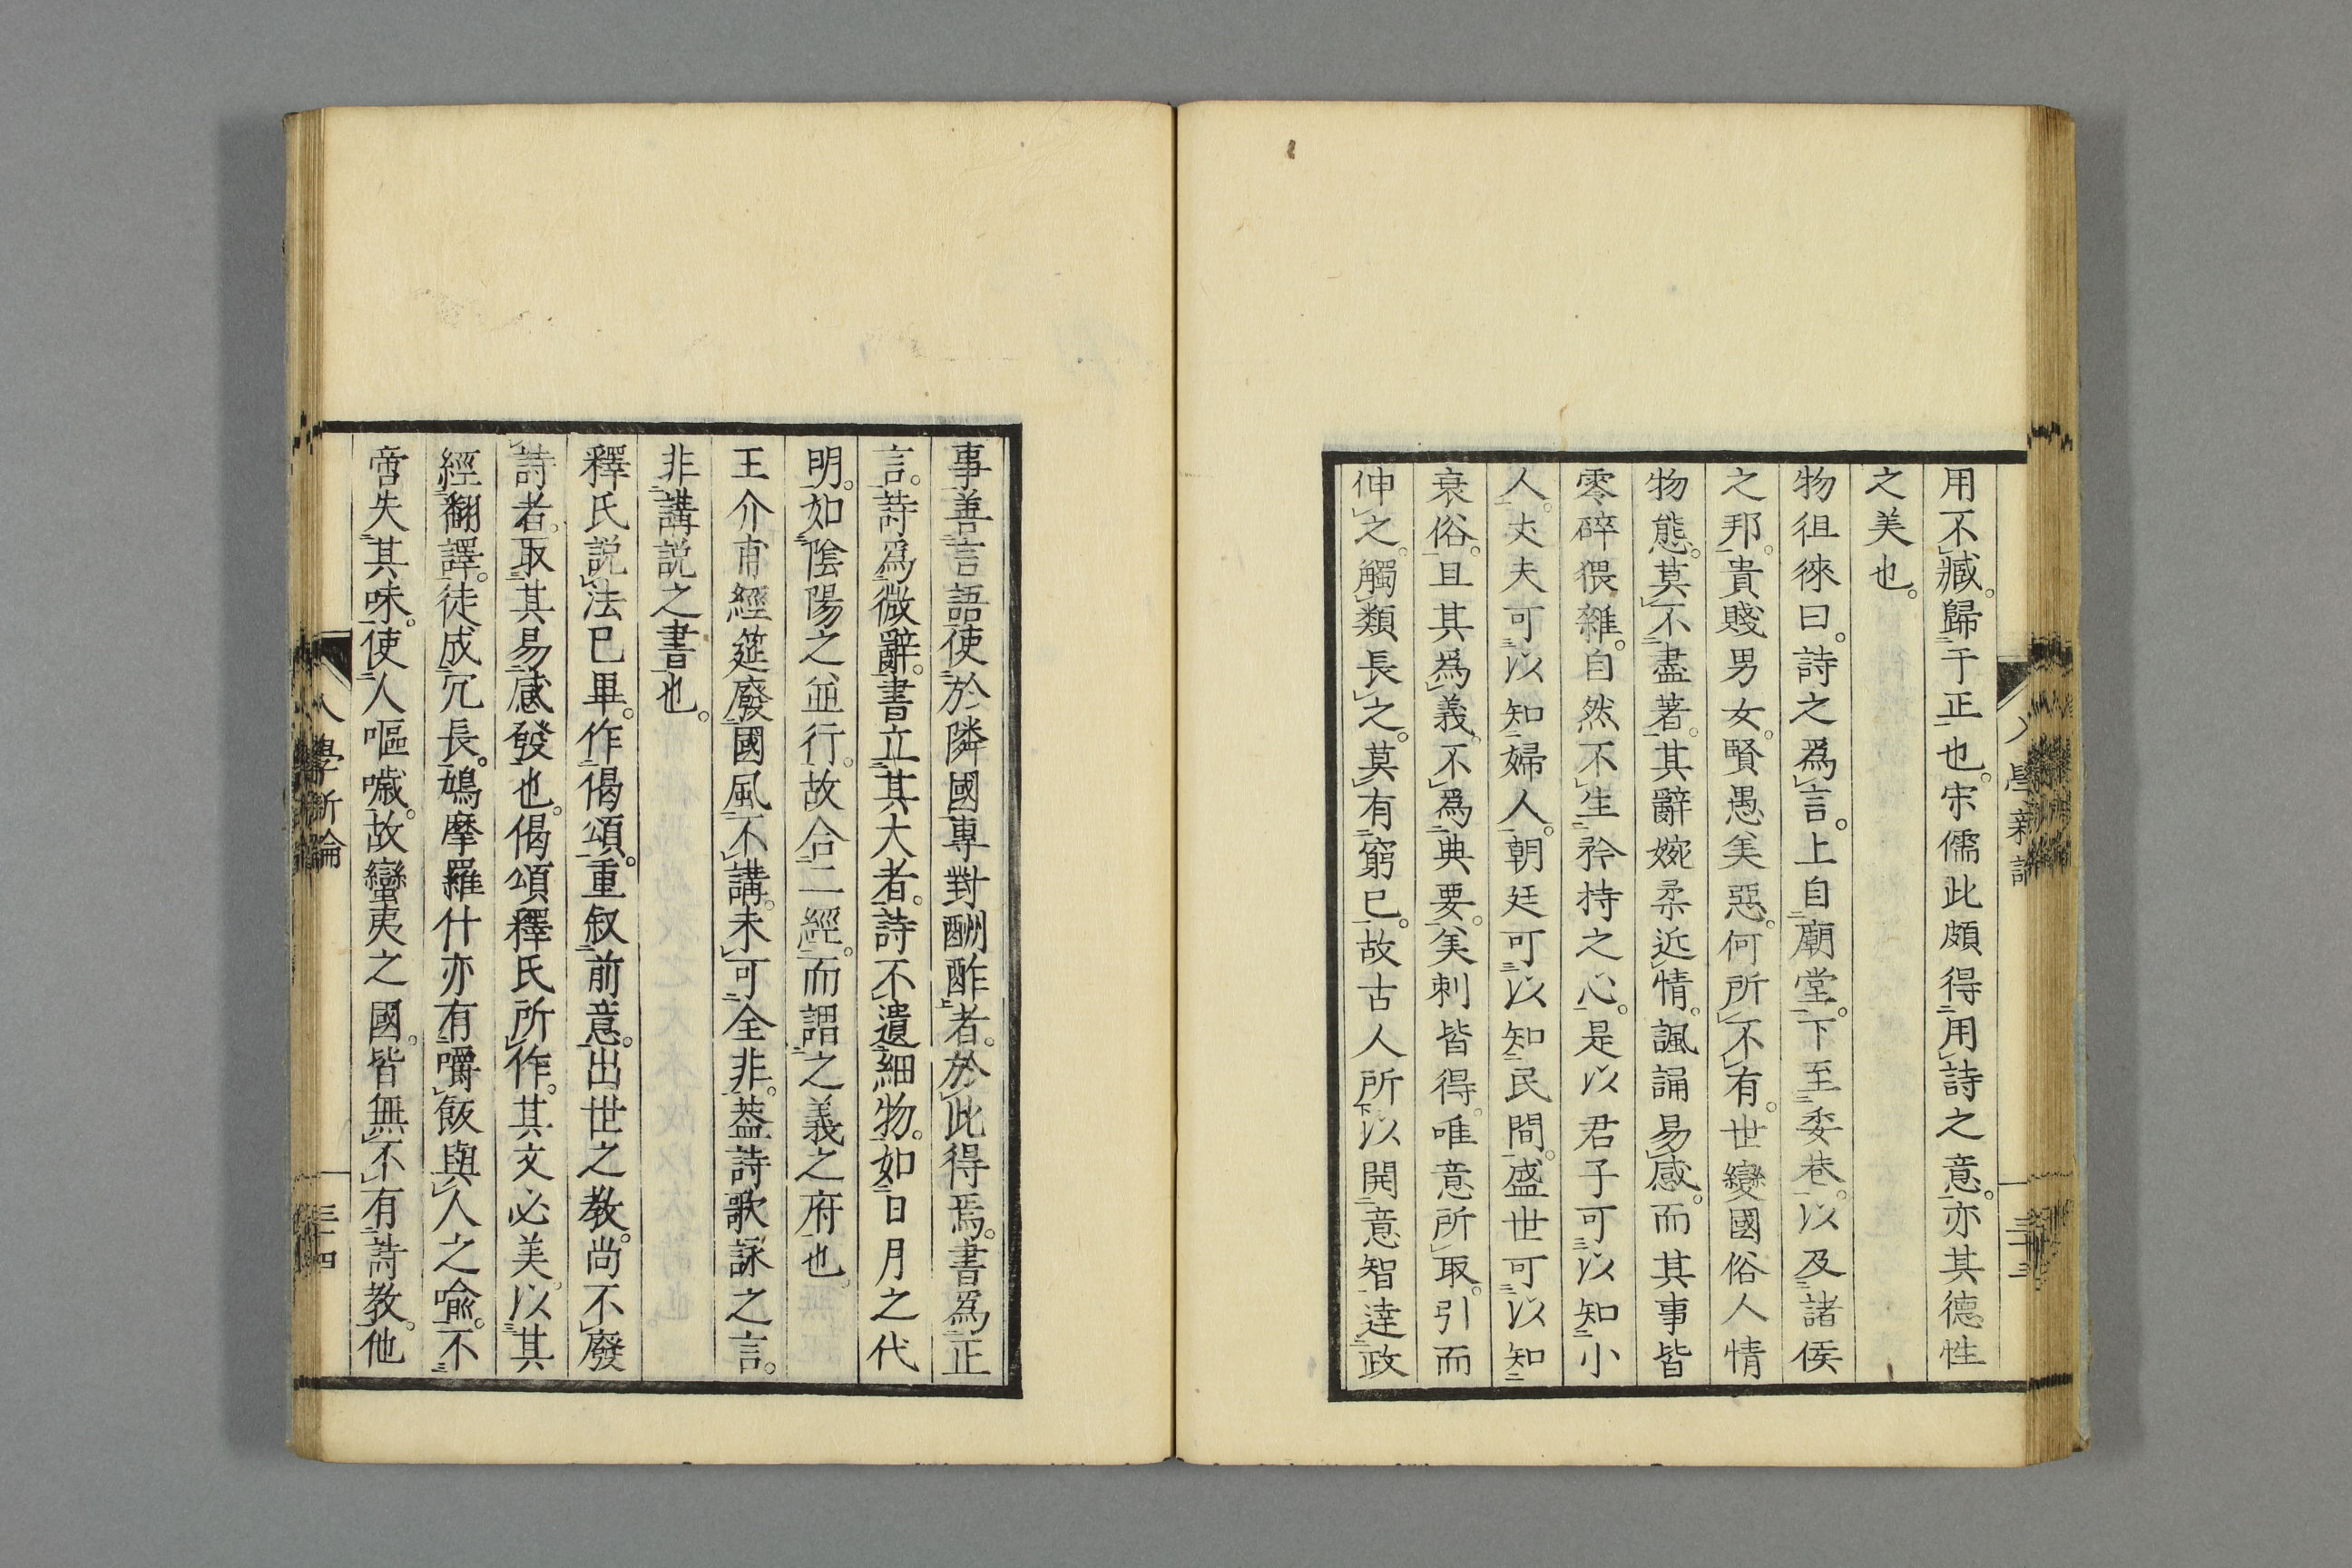 用不臧。歸于正也。宋儒此頗得用詩之意。亦其德性
之美也。
物徂徠曰。詩之爲言。上自廟堂。下至委巷。以及諸侯
之邦。貴賤男女。賢愚美惡。何所不有。世變國俗人情
物態。莫不盡著。其辭婉柔近情。諷誦易感。而其事皆
零碎猥雜。自然不生矜持之心。是以君子可以知小
人。丈夫可以知婦人。朝廷可以知民間。盛世可以知
衰俗。且其爲義。不爲典要。美刺皆得。唯意所取。引而
伸之。觸類長之。莫有窮已。故古人所以開意智達政
事善言語使於隣國專對酬酢者。於此得焉。書爲正
言。詩爲微辭。書立其大者。詩不遺細物。如日月之代
明。如陰陽之並行。故合二經。而謂之義之府也。
王介甫經筵廢國風不講。未可全非。葢詩歌詠之言。
非講説之書也。
釋氏説法已畢。作偈頌。重叙前意。出世之教。尚不廢
詩者。取其易感發也。偈頌釋氏所作。其文必美。以其
經翻譯。徒成冗長。鳩摩羅什亦有嚼飯與人之喩。不
啻失其味。使人嘔噦。故蠻夷之國。皆無不有詩教。他
入學新論
三十四